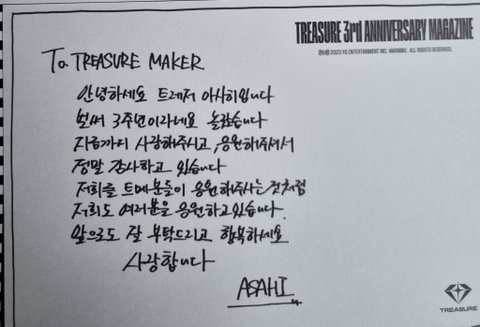 TREASURE 3rd ANNIVERSARY MAGAZINE
℗&© 2023 YG ENTERTAINMENT INC. WARNING : ALL RIGHTS RESERVED.
To. TREASURE MAKER
안녕하세요 트레저 아사히입니다
벌써 3주년이라네요 놀랐습니다
지금까지 사랑해주시고, 응원해주셔서
정말 감사하고 있습니다
저희를 트메분들이 응원해주시는 것처럼
저희도 여러분을 응원하고있습니다.
앞으로도 잘 부탁드리고 행복하세요
사랑합니다
ASAHI
TREASURE